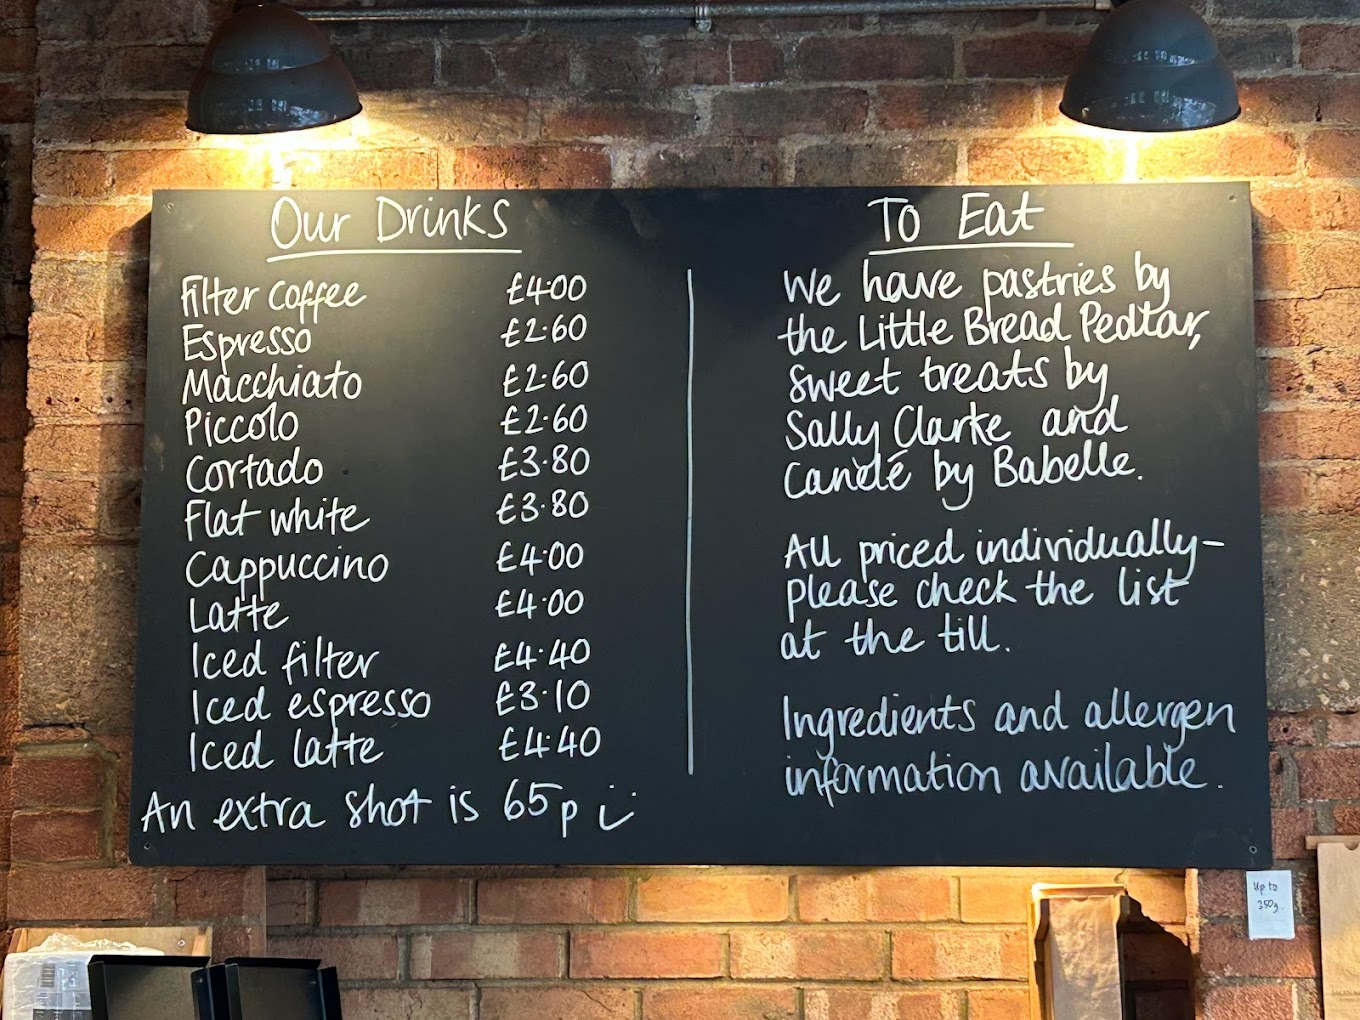 Our Drinks
Filter coffee £4.00
Espresso £2.60
Macchiato £2.60
Piccolo £2.60
Cortado £3.80
Flat white £3.80
Cappuccino £4.00
Latte £4.00
Iced filter £4.40
Iced espresso £3.10
Iced latte £4.40
An extra shot is 65p
To Eat
We have pastries by
the Little Bread Pedlar,
sweet treats by
Sally Clarke and
Candé by Babelle.
All priced individually –
please check the list
at the till.
Ingredients and allergen
information available.
Up to
350g